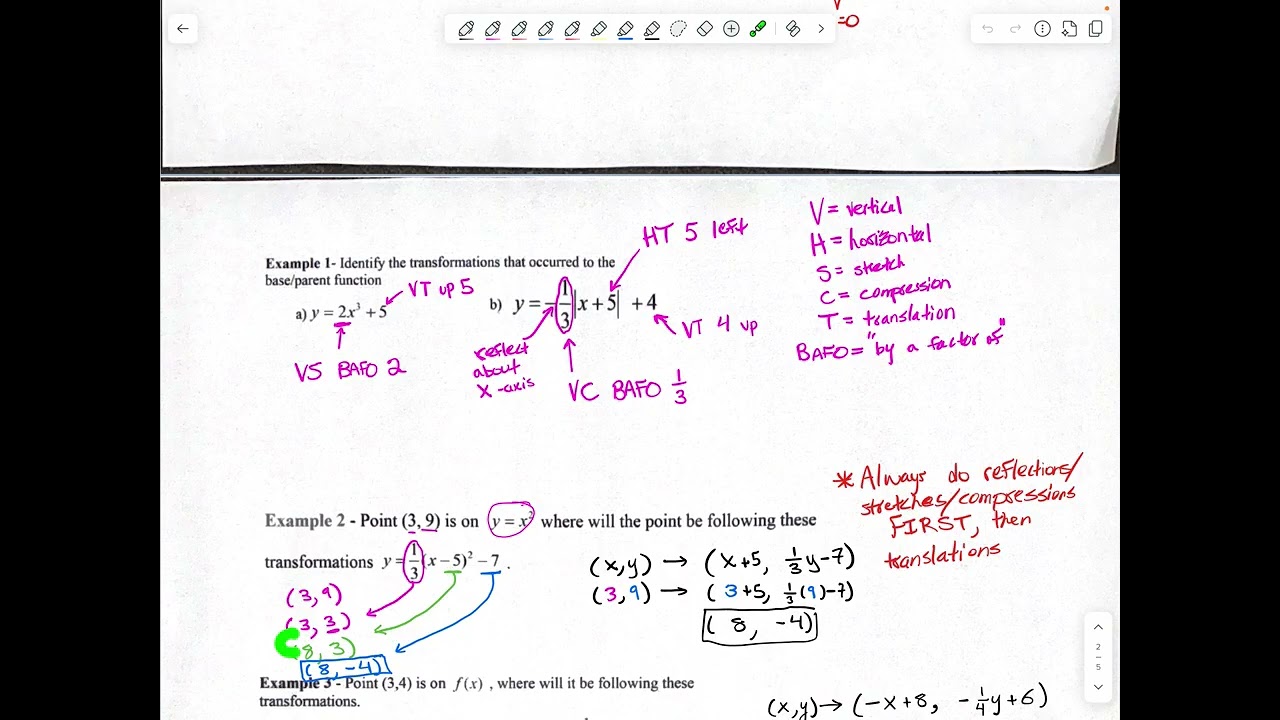 =0
Example 1- Identify the transformations that occurred to the
base/parent function
a) y = 2x³ + 5
VT up 5
VS BAFO 2
b) y = -1/3|x+5| +4
HT 5 left
VT 4 up
reflect
about
x-axis
VC BAFO 1/3
V = vertical
H = horizontal
S = stretch
C = compression
T = translation
BAFO = "by a factor of"
* Always do reflections/
stretches/compressions
FIRST, then
translations
Example 2 - Point (3, 9) is on y = x² where will the point be following these
transformations y = 1/3(x-5)² - 7 .
(3,9)
(3, 3)
(8, 3)
(8, -4)
(x,y) → (x+5, 1/3y-7)
(3,9) → (3+5, 1/3(9)-7)
(8, -4)
Example 3 - Point (3,4) is on f(x) , where will it be following these
transformations.
(x,y) → (-x+8, -1/4y+6)
2
5